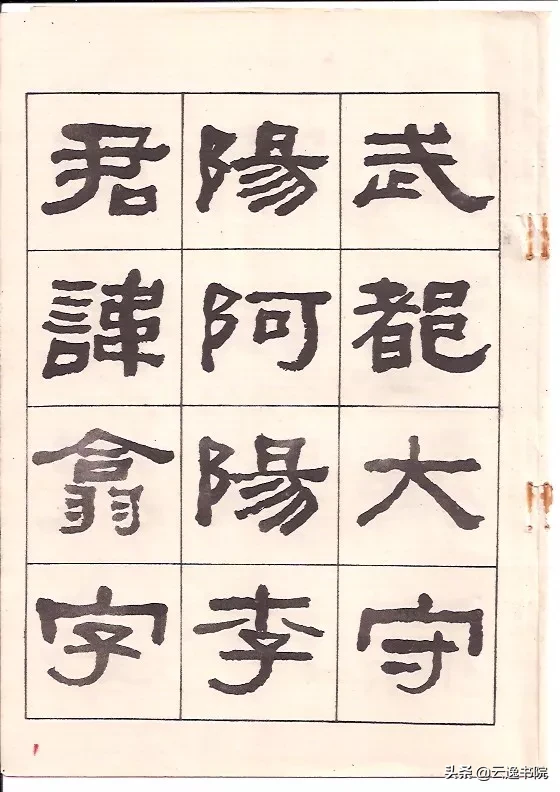 武都大守
陽阿陽李
君諱翕字
头条 @云逸书院